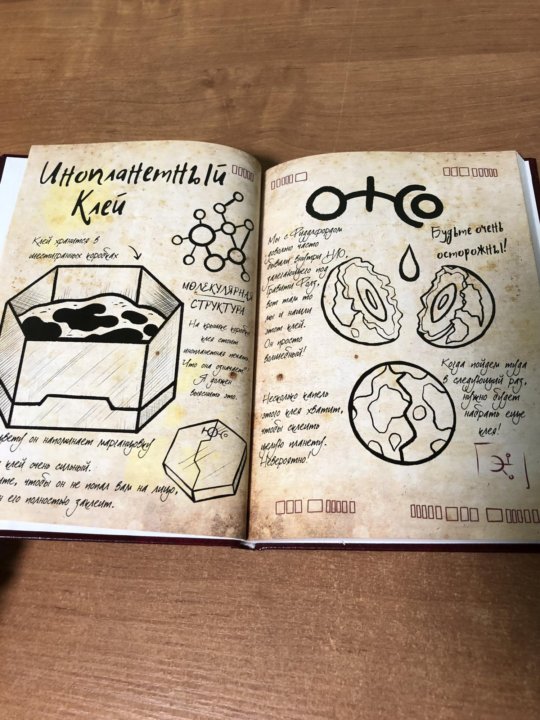 Инопланетный
Клей
Клей хранится в
шестигранных коробках
МОЛЕКУЛЯРНАЯ
СТРУКТУРА
На крышке коробки
клея стоит
инопланетная печать.
Что она означает?
Я должен
выяснить это.
цвету он напоминает марганцовку
клей очень сильный.
те, чтобы он не попал вам на лицо,
он его полностью заклеит.
Мы с Фиддлфордом
довольно часто
бывали внутри НЛО,
залегающего под
Гравити Фолз,
вот там то
мы и нашли
этот клей.
Он просто
волшебный!
Будьте очень
осторожны!
Несколько капель
этого клея хватит,
чтобы склеить
целую планету.
Невероятно!
Когда пойдем туда
в следующий раз,
нужно будет
набрать еще
клея!